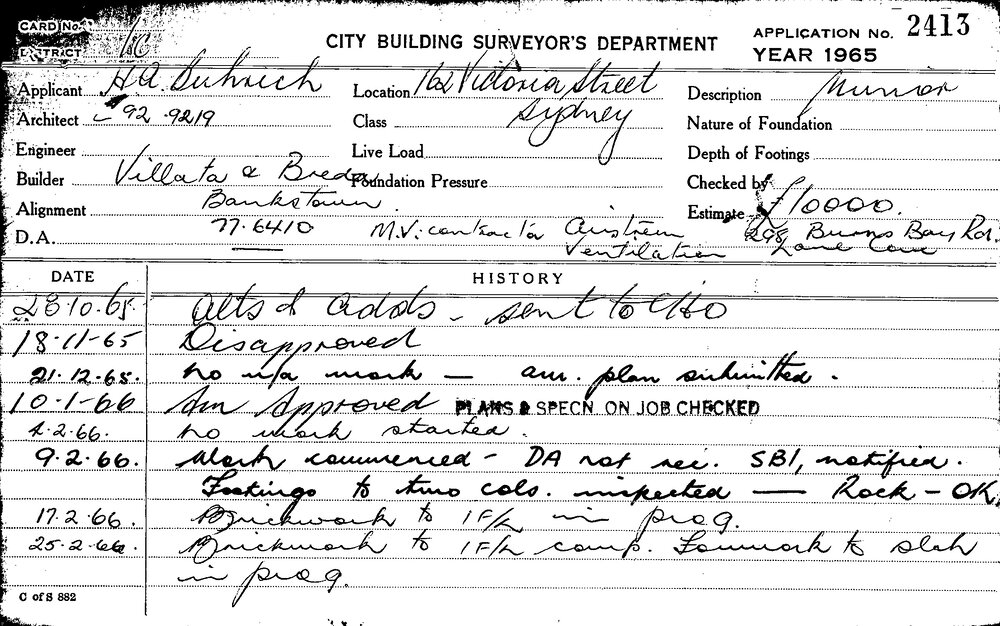 CARD No.
DISTRICT
CITY BUILDING SURVEYOR'S DEPARTMENT
APPLICATION No. 2413
YEAR 1965
Applicant H.A. Location 162 Victoria Street Description Minor
Architect 92.9219 Class Sydney Nature of Foundation
Engineer Live Load Depth of Footings
Builder Villata & Breda Foundation Pressure Checked by
Alignment Bankstown. Estimate £10000.
D.A. 77.6410 M.V. contractor Airstream Ventilation 298 Burns Bay Rd. Lane Cove
DATE HISTORY
28.10.65. Alts & adds - sent to
18-11-65 Disapproved
21.12.65. No work — am. plan submitted.
10-1-66 Am Approved PLANS & SPECN. ON JOB CHECKED
4.2.66. No work started.
9.2.66. Work commenced - DA not rec. SBI, notified.
Footings to two cols. inspected — Rock - OK,
17.2.66. Brickwork to 1F/L in prog.
25-2-66. Brickwork to 1F/L comp. Formwork to slab
in prog.
C of S 882